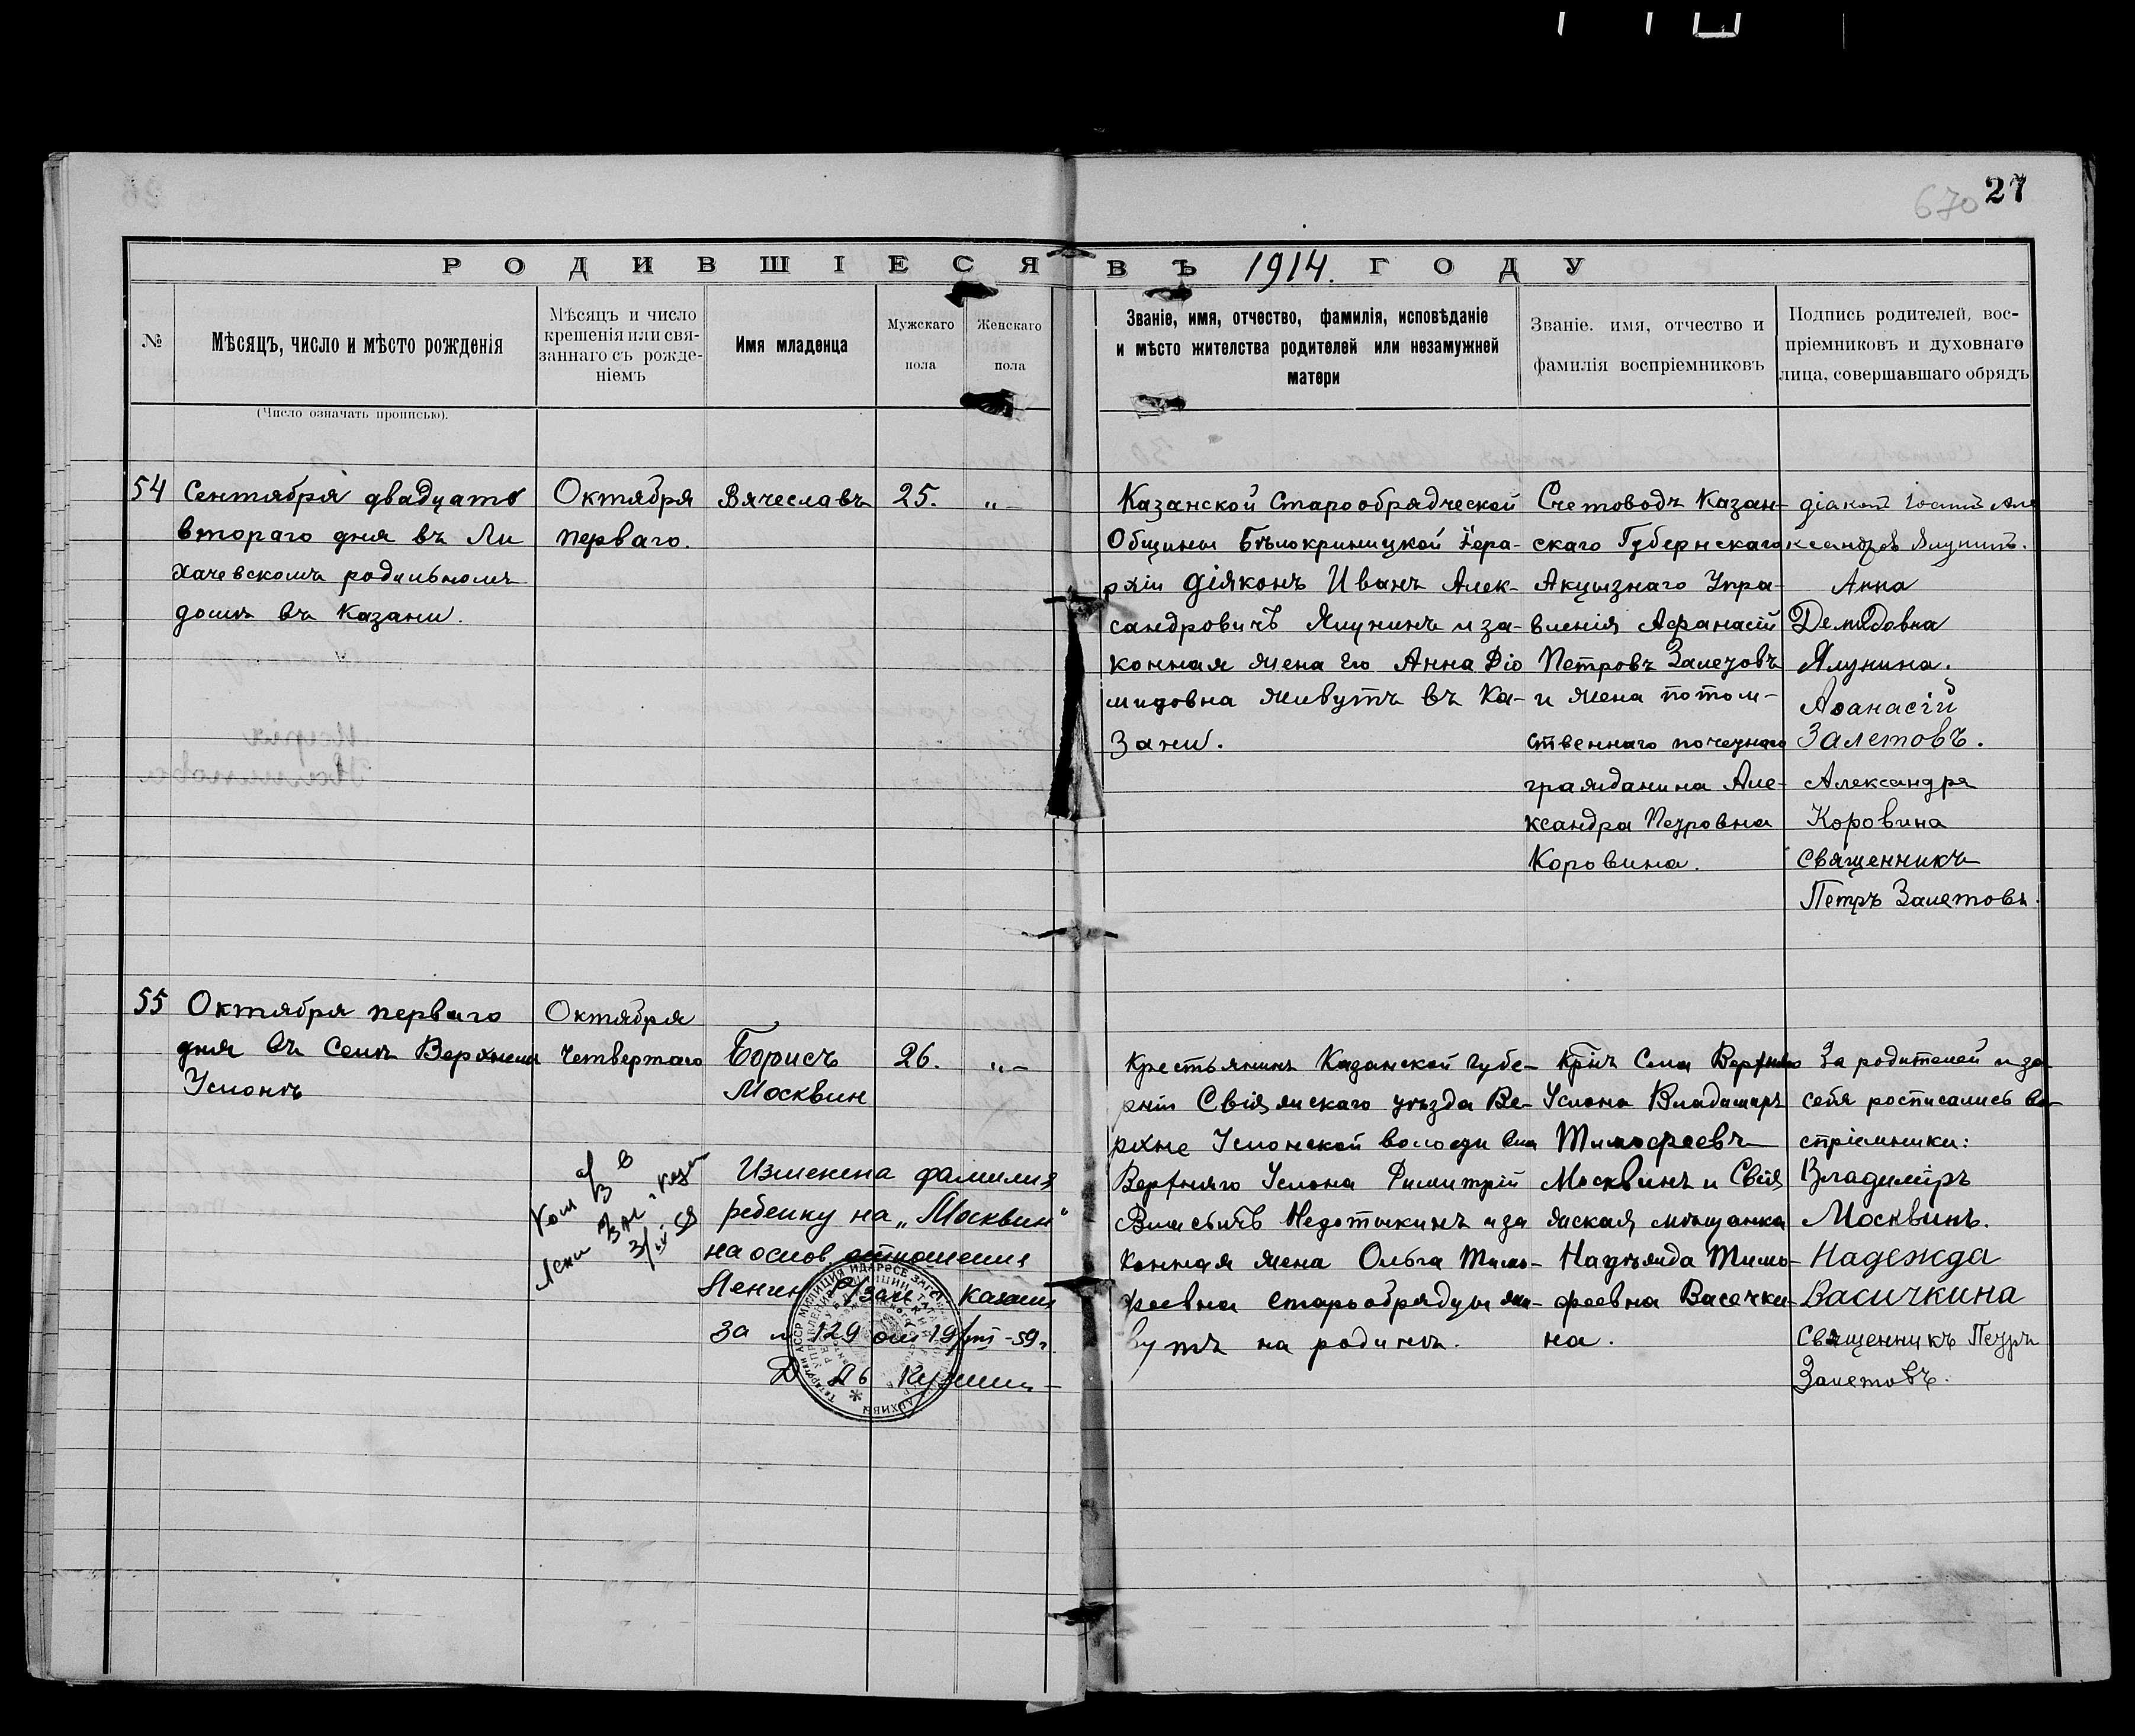 27
670
РОДИВШІЕСЯ ВЪ 1914. ГОДУ
№
Мѣсяцъ, число и мѣсто рожденія
(Число означать прописью).
Мѣсяцъ и число
крещенія или свя-
заннаго съ рожде-
ніемъ
Имя младенца
Мужскаго
пола
Женскаго
пола
Званіе, имя, отчество, фамилія, исповѣданіе
и мѣсто жителства родителей или незамужней
матери
Званіе. имя, отчество и
фамилія воспріемниковъ
Подпись родителей, вос-
пріемниковъ и духовнаго
лица, совершавшаго обрядъ
54
Сентября двадцать
втораго дня въ Ли
хачевскомъ родильномъ
домѣ въ Казани.
Октября
перваго.
Вячеславъ
25.
„
Казанской Старообрядческой
Общины Бѣлокриницкой Іера-
рхіи діяконъ Иванъ Алек-
сандровичъ Ялунинъ и за-
конная жена его Анна Діо
мидовна живутъ въ Ка-
зани.
Счетоводъ Казан-
скаго Губернскаго
Акцызнаго Упра-
вленія Афанасій
Петровъ Залетовъ
и жена потом-
ственнаго почетнаго
гражданина Але-
ксандра Петровна
Коровина.
діаконъ Іоаннъ Але
ксандровъ Ялунинъ.
Анна
Демидовна
Ялунина.
Аѳанасій
Залетовъ.
Александра
Коровина
Священникъ
Петръ Залетовъ.
55
Октября перваго
дня въ Селѣ Верхнемъ
Услонѣ
Октября
Четвертаго
Борисъ
Москвин
26.
„
Крестьянинъ Казанской губе-
рніи Свіяжскаго уѣзда Ве-
рхне Услонской волости села
Верхняго Услона Димитрій
Власьичъ Недотыкинъ и за
конная жена Ольга Тимо-
феевна старообрядцы жи-
вутъ на родинѣ.
Крнъ Села Верхняго
Услона Владимиръ
Тимофеевъ
Москвинъ и Свія
жская мѣщанка
Надѣжда Тимо-
феевна Васечки-
на.
За родителей и за
себя росписались во-
спріемники:
Владиміръ
Москвинъ.
Надежда
Васичкина
Священникъ Петръ
Залетовъ.
Изменена фамилия
ребенку на „Москвин“
на основ. отношения
Ленин Р/загс г Казани
за № 129 от 19/VIII-59г.